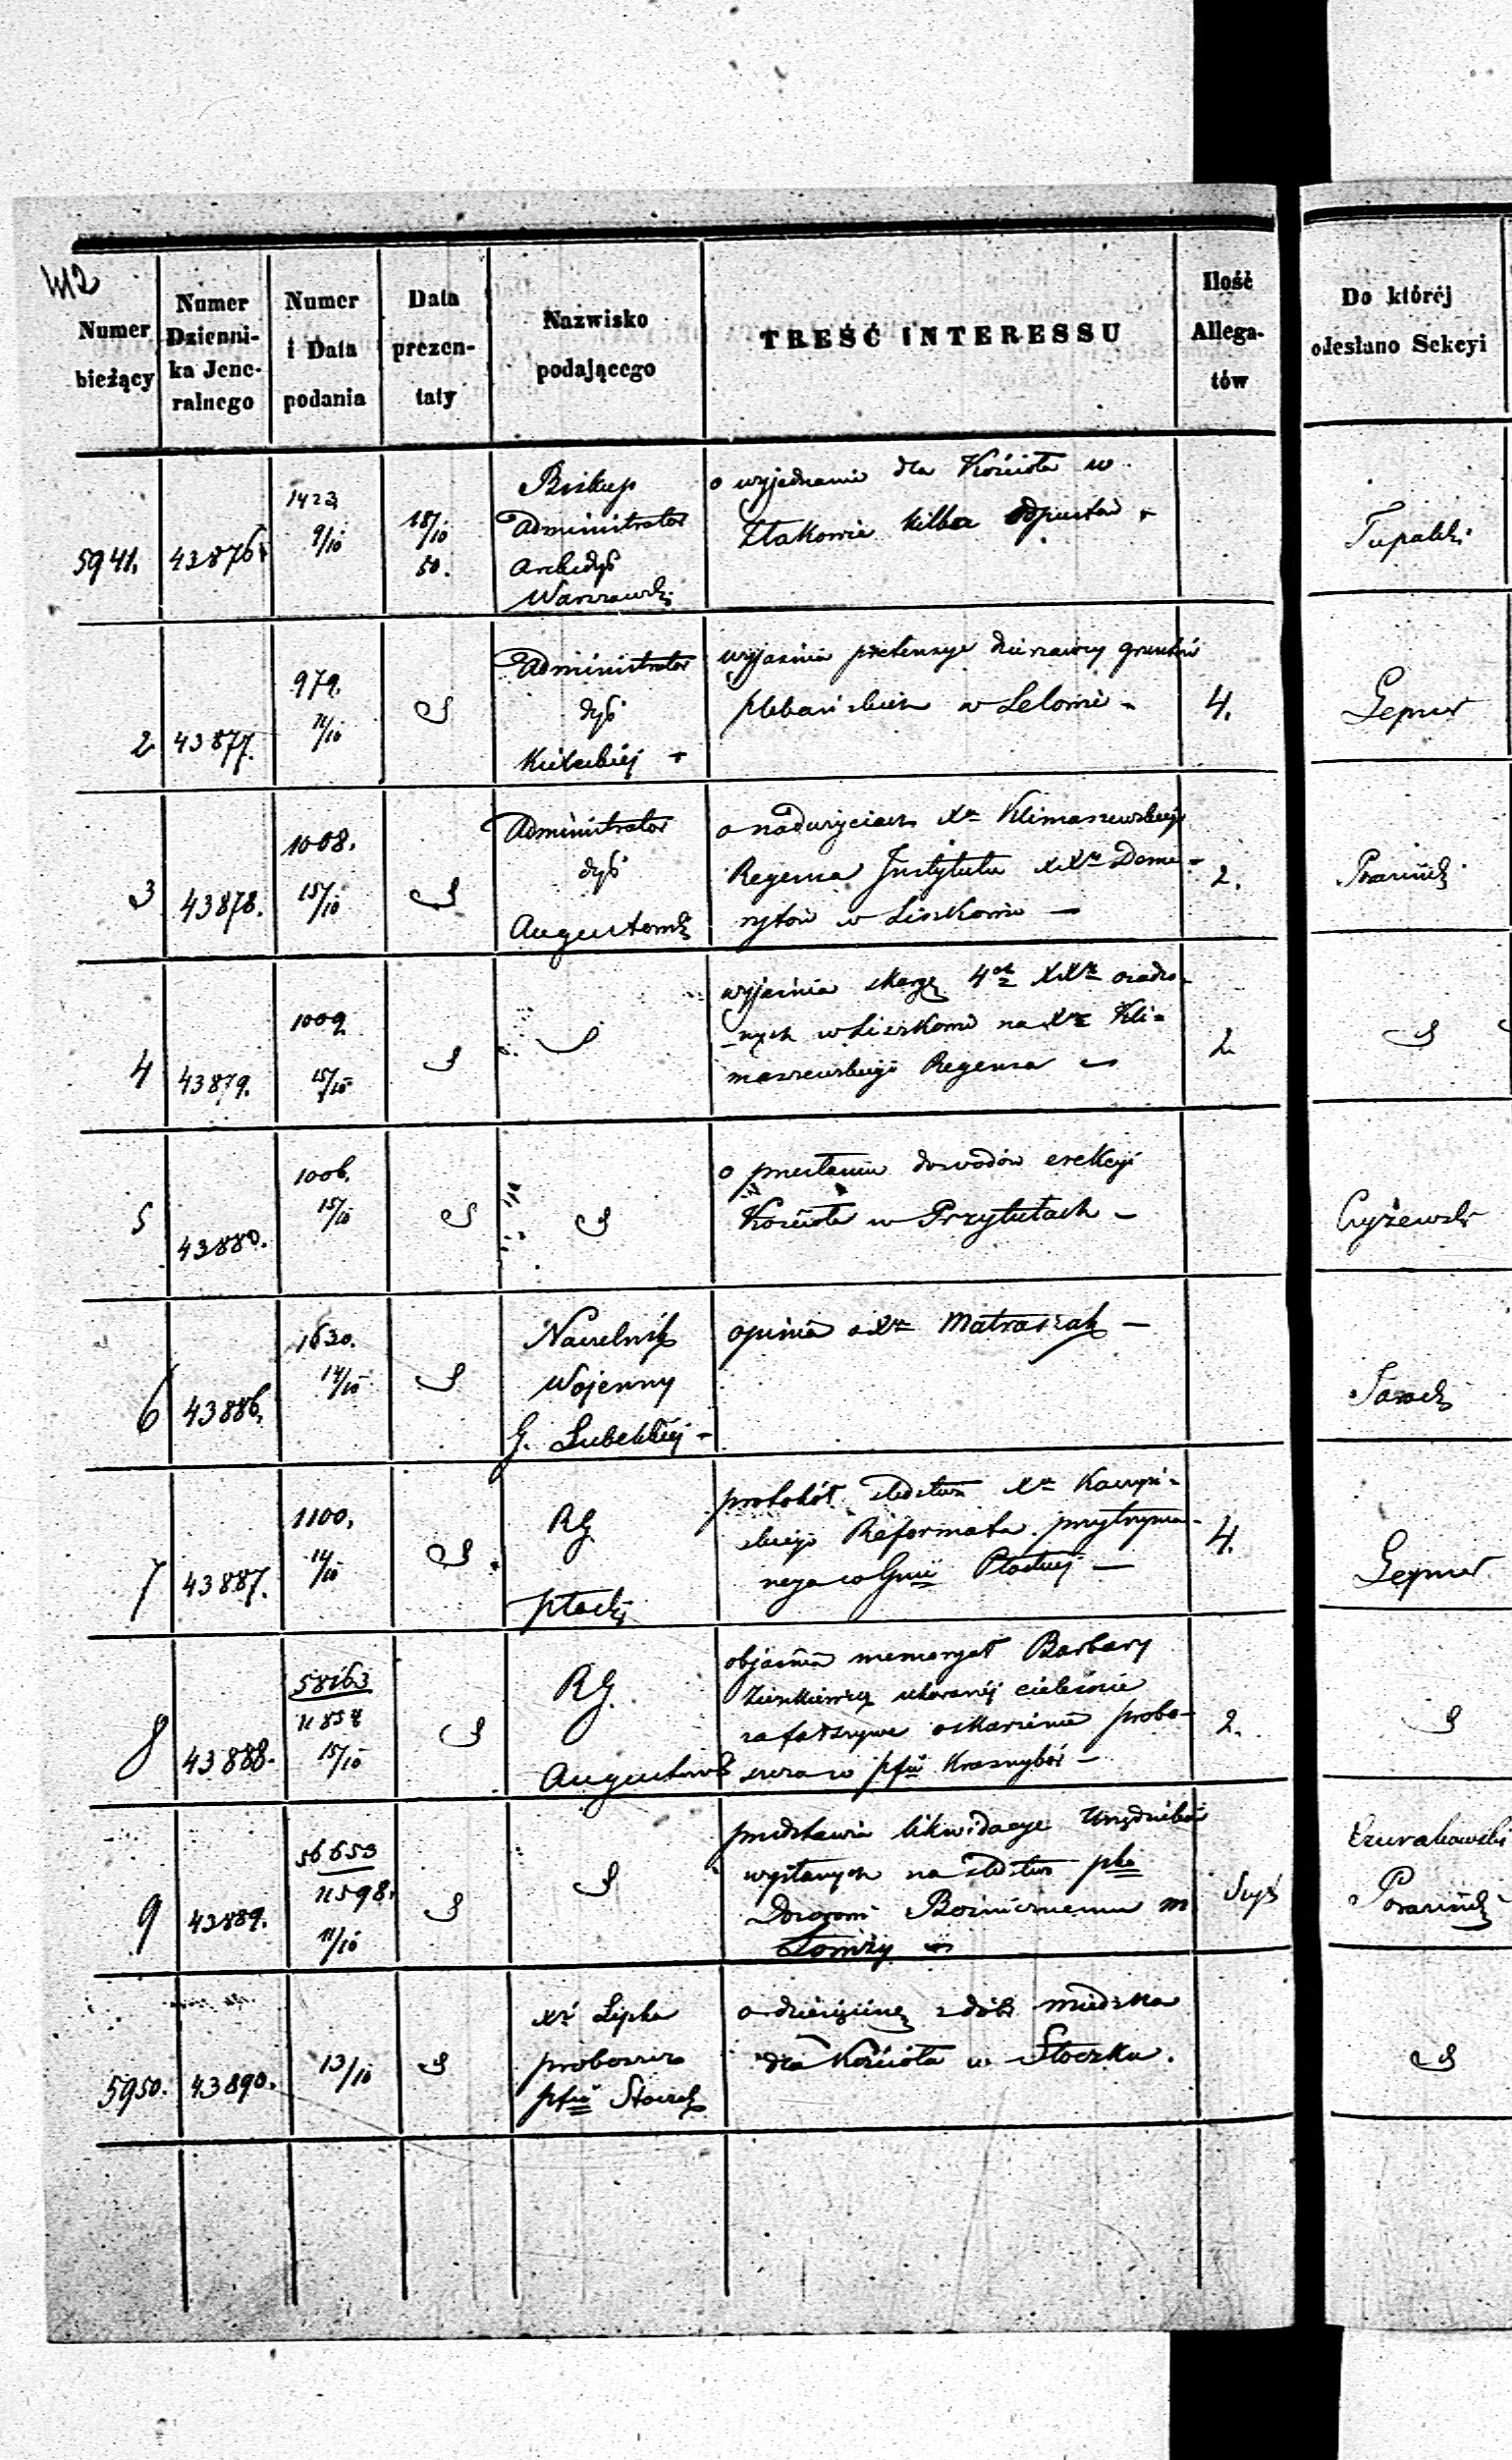 412
Numer bieżący
Numer Dzienni-ka Jene-ralnego
Numer i Data podania
Data prezen-taty
Nazwisko podającego
TREŚĆ INTERESSU
Ilość Allega-tów
Do któréj odesłano Sekcyi
5941. 43876. 1423 9/10 18/10 50.
Biskup
Administrator
Archidyś
Warszawski
o wyjednanie dla Kościoła w
Złakowie kilku odpustów
Tupalski
2 43877. 979. 11/10
Administrator
dyś
Kieleckiéj
wyjaśnia pretensye dzierzawcy gruntów
plebańskich w Lelowie -
4.
Lepner
3 43878. 1008. 15/10
Administrator
dyś
Augustowsk
o nadużyciach Xa Klimaszewskiego
Regensa Instytutu XXy Deme-
rytów w Liszkowie —
2.
4 43879. 1009 15/10
wyjaśnia skargę 4ch XXy osadzo-
nych w Liszkowie na Xa Kli=
maszewskiego Regensa
2
5 43880. 1006. 15/10
o przesłaniu dowodów erekcyi
Kościoła w Przytułach -
Czyżewski
6 43886. 1630. 14/10
Naczelnik
Wojenny
G. Lubelskiéj -
opinia o Xu Matraszek —
7 43887. 1100. 14/10
RG
Płocki
protokół śledztwa Xa
skiego Reformata przytrzyma-
nego w Gnii Płockiej —
4.
Lepner
8 43888. 58163 11858 15/10
RG.
Augustowski
objaśnia memoryał Barbary
Zienkiewicz ukaranéj cieleśnie
za fałszywe oskarżenie probo-
szcza w pfii Krasnybór -
2.
9 43889. 56653 11598. 11/10
przedstawia likwidacye Urzędników
wysłanych na śledztwo pko
Dozorowi Bożniczemu m
Łomży
5950. 43890. 13/10
Xs Lipka
proboszcz
pfii Stoczek
o dziesięcinę z dóbr Miedzna
dla Kościoła w Stoczku.